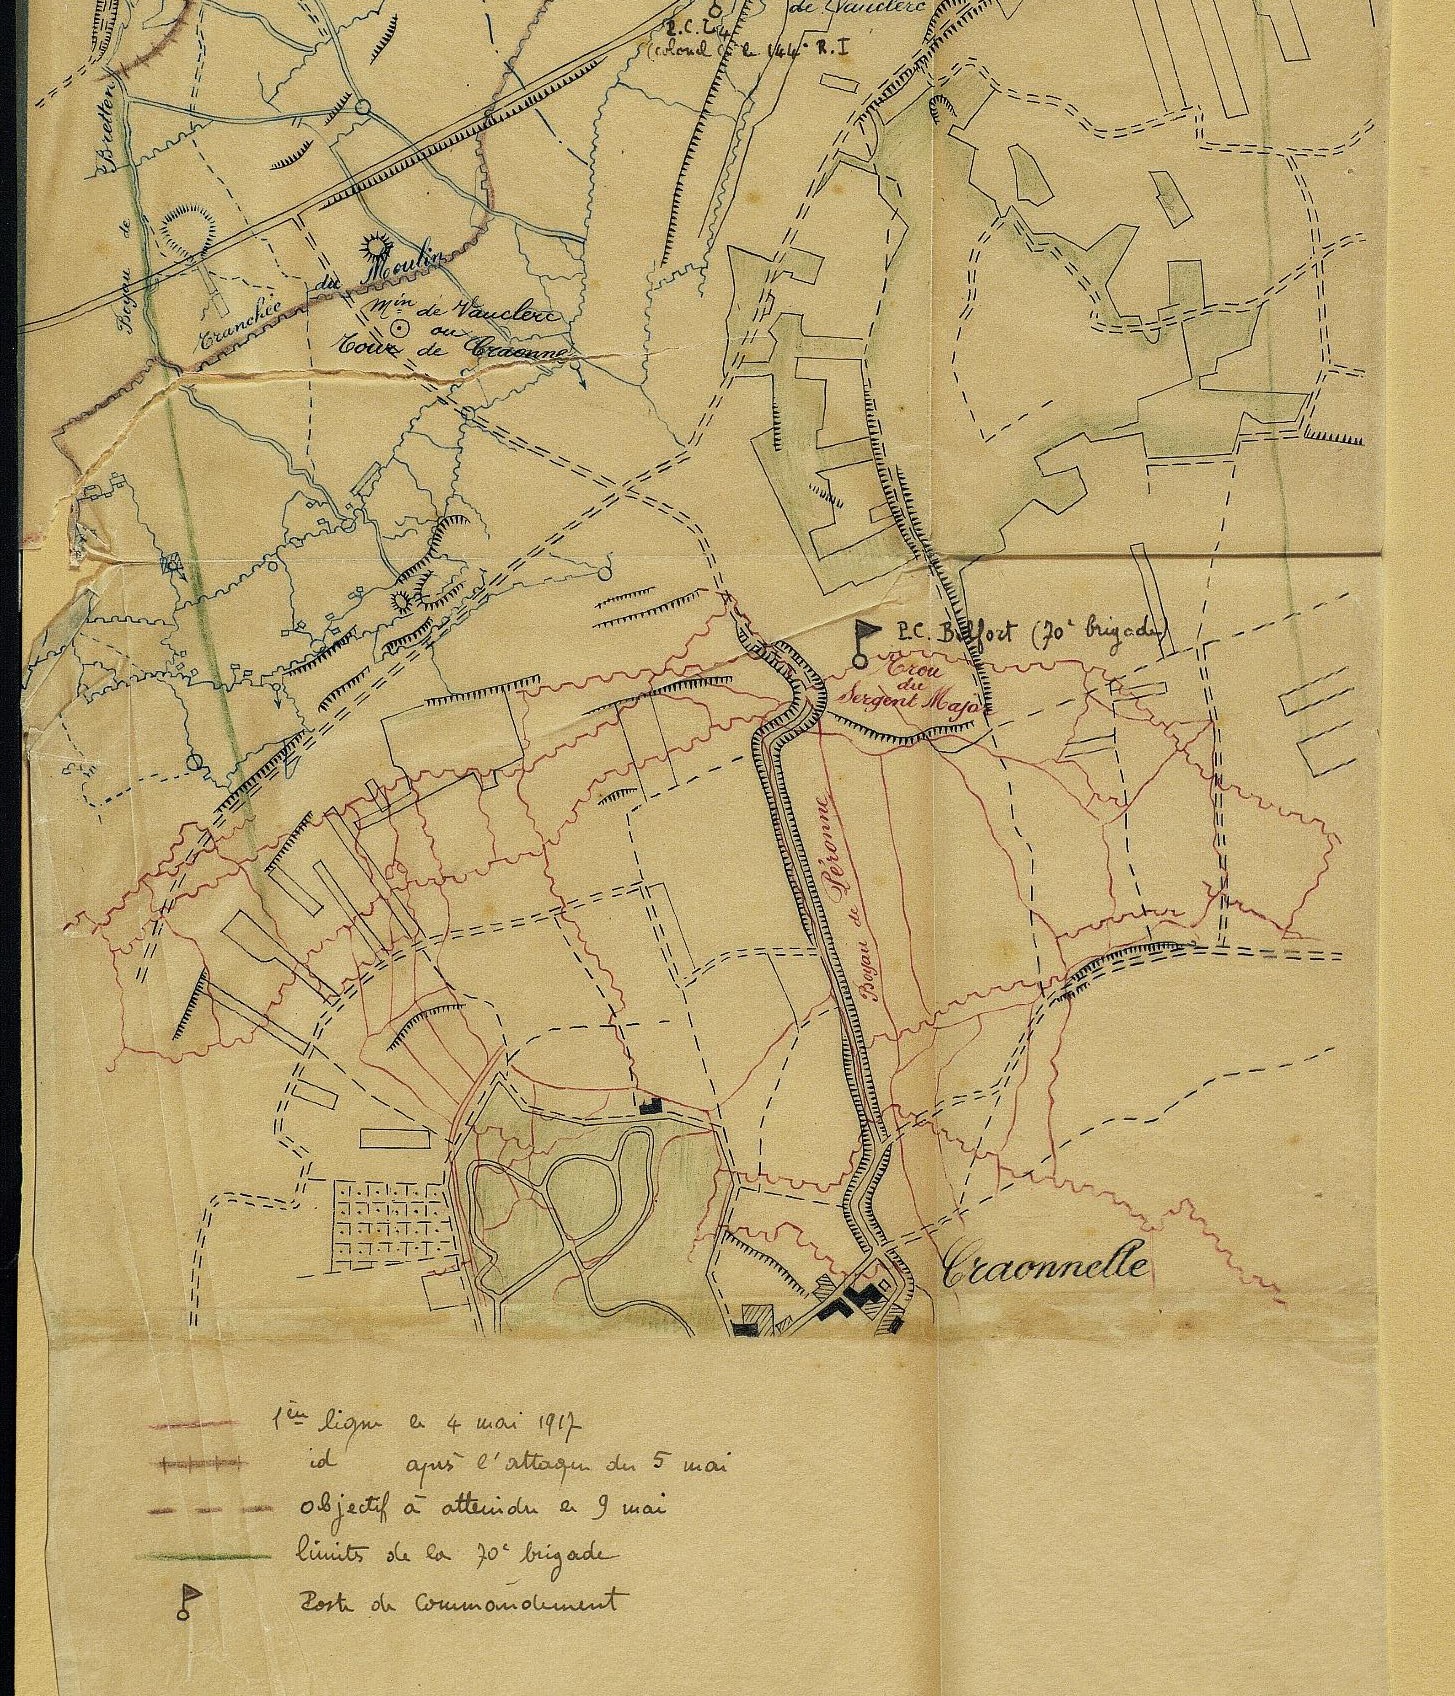 de Vauclerc
P.C.
colonel le 144e R.I
Boyau de Bretten
Tranchée du Moulin
Min de Vauclerc
ou
Tour de Craonne
P.C. Belfort (70e brigade)
Trou
du
Sergent Major
Boyau de Péronne
Craonnelle
1ère ligne le 4 mai 1917
id après l'attaque du 5 mai
objectif à atteindre le 9 mai
limites de la 70e brigade
Poste de Commandement